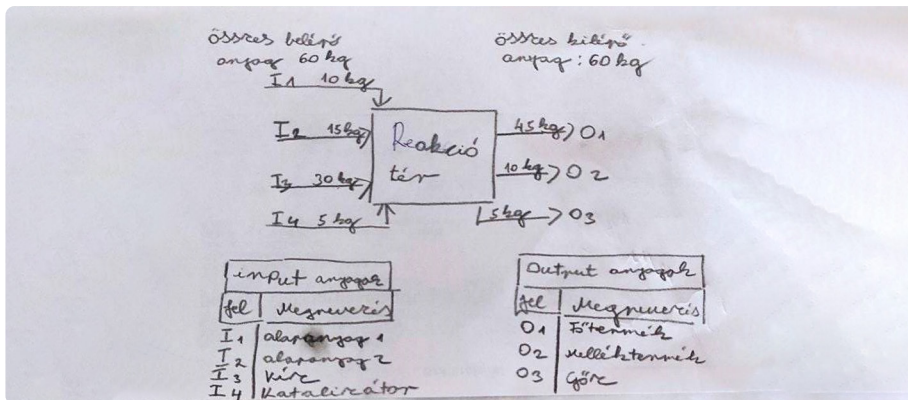 összes belépő
anyag 60 kg
összes kilépő
anyag: 60 kg
I1 10 kg
I2 15 kg
I3 30 kg
I4 5 kg
Reakció
tér
45 kg O1
10 kg O2
5 kg O3
inPut anyagok
Jel Megnevezés
I1 alapanyag 1
I2 alapanyag 2
I3 víz
I4 Katalizátor
Output anyagok
Jel Megnevezés
O1 Főtermék
O2 Melléktermék
O3 Gőz